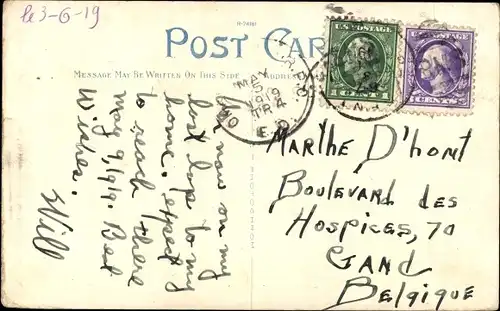 le 3-6-19
POST CARD
MESSAGE MAY BE WRITTEN ON THIS SIDE
ADDRESS
U.S. POSTAGE
U.S. POSTAGE
CENTS
MAY
5
1919
Am now on my
last lap to my
home. expect
to reach there
may 9, 1919. Best
Wishes.
Will
MARTHE D'hont
Boulevard des
Hospices, 70
GAND
Belgique